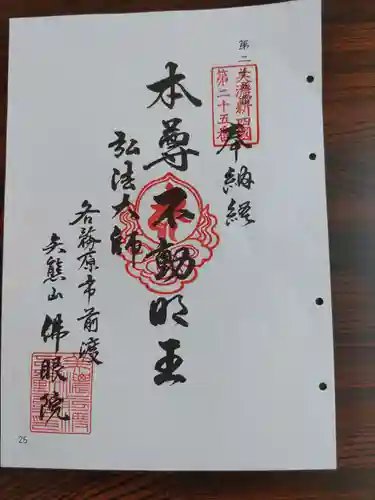 第二
美濃新四国
第二十五番
奉納経
本尊不動明王
弘法大師
各務原市前渡
矢熊山 佛眼院
25